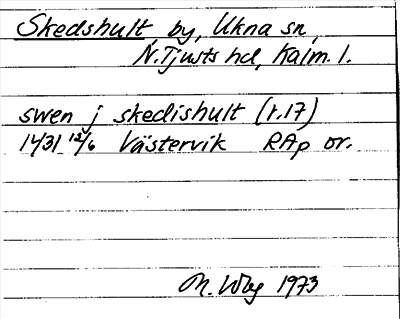 Skedshult, by, Ukna sn,
N. Tjusts hd, Kalm. l.
swen j skedishult (r. 17)
1431 12/6 Västervik RAp or.
M. Wbg 1973